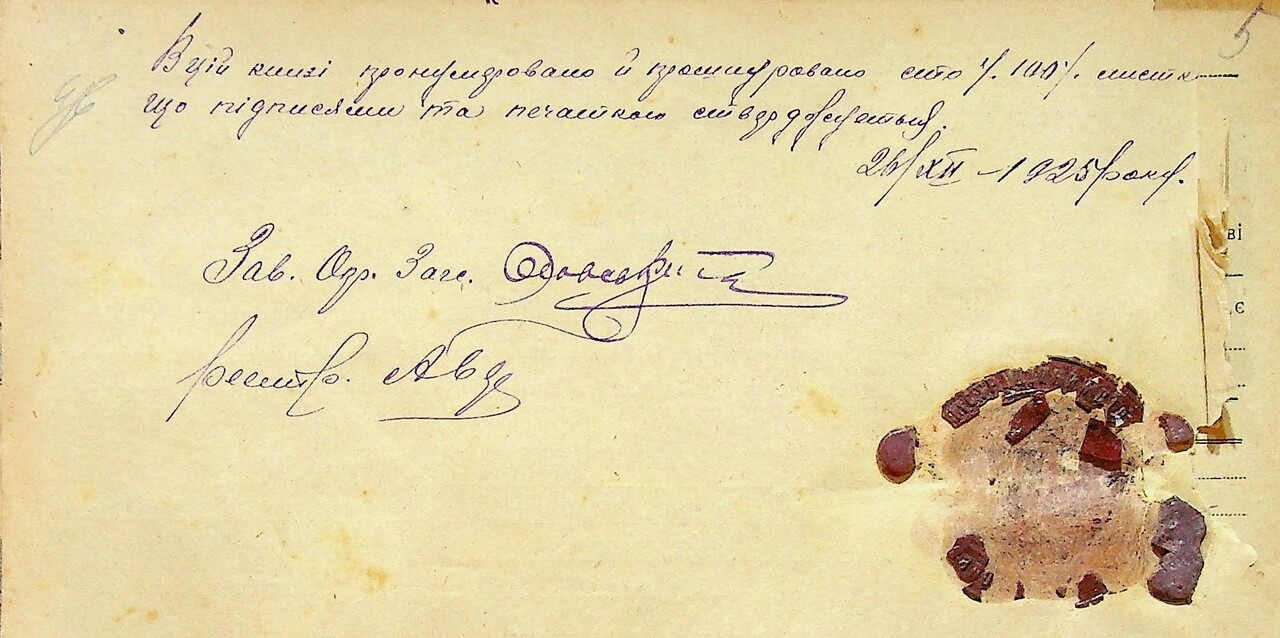 5
В цій книзі пронумеровано й прошнуровано сто /100/ листів
що підписями та печаткою стверджується.
26/XII - 1925 року.
Зав. Окр. Загс.
реєстр.
ві
є